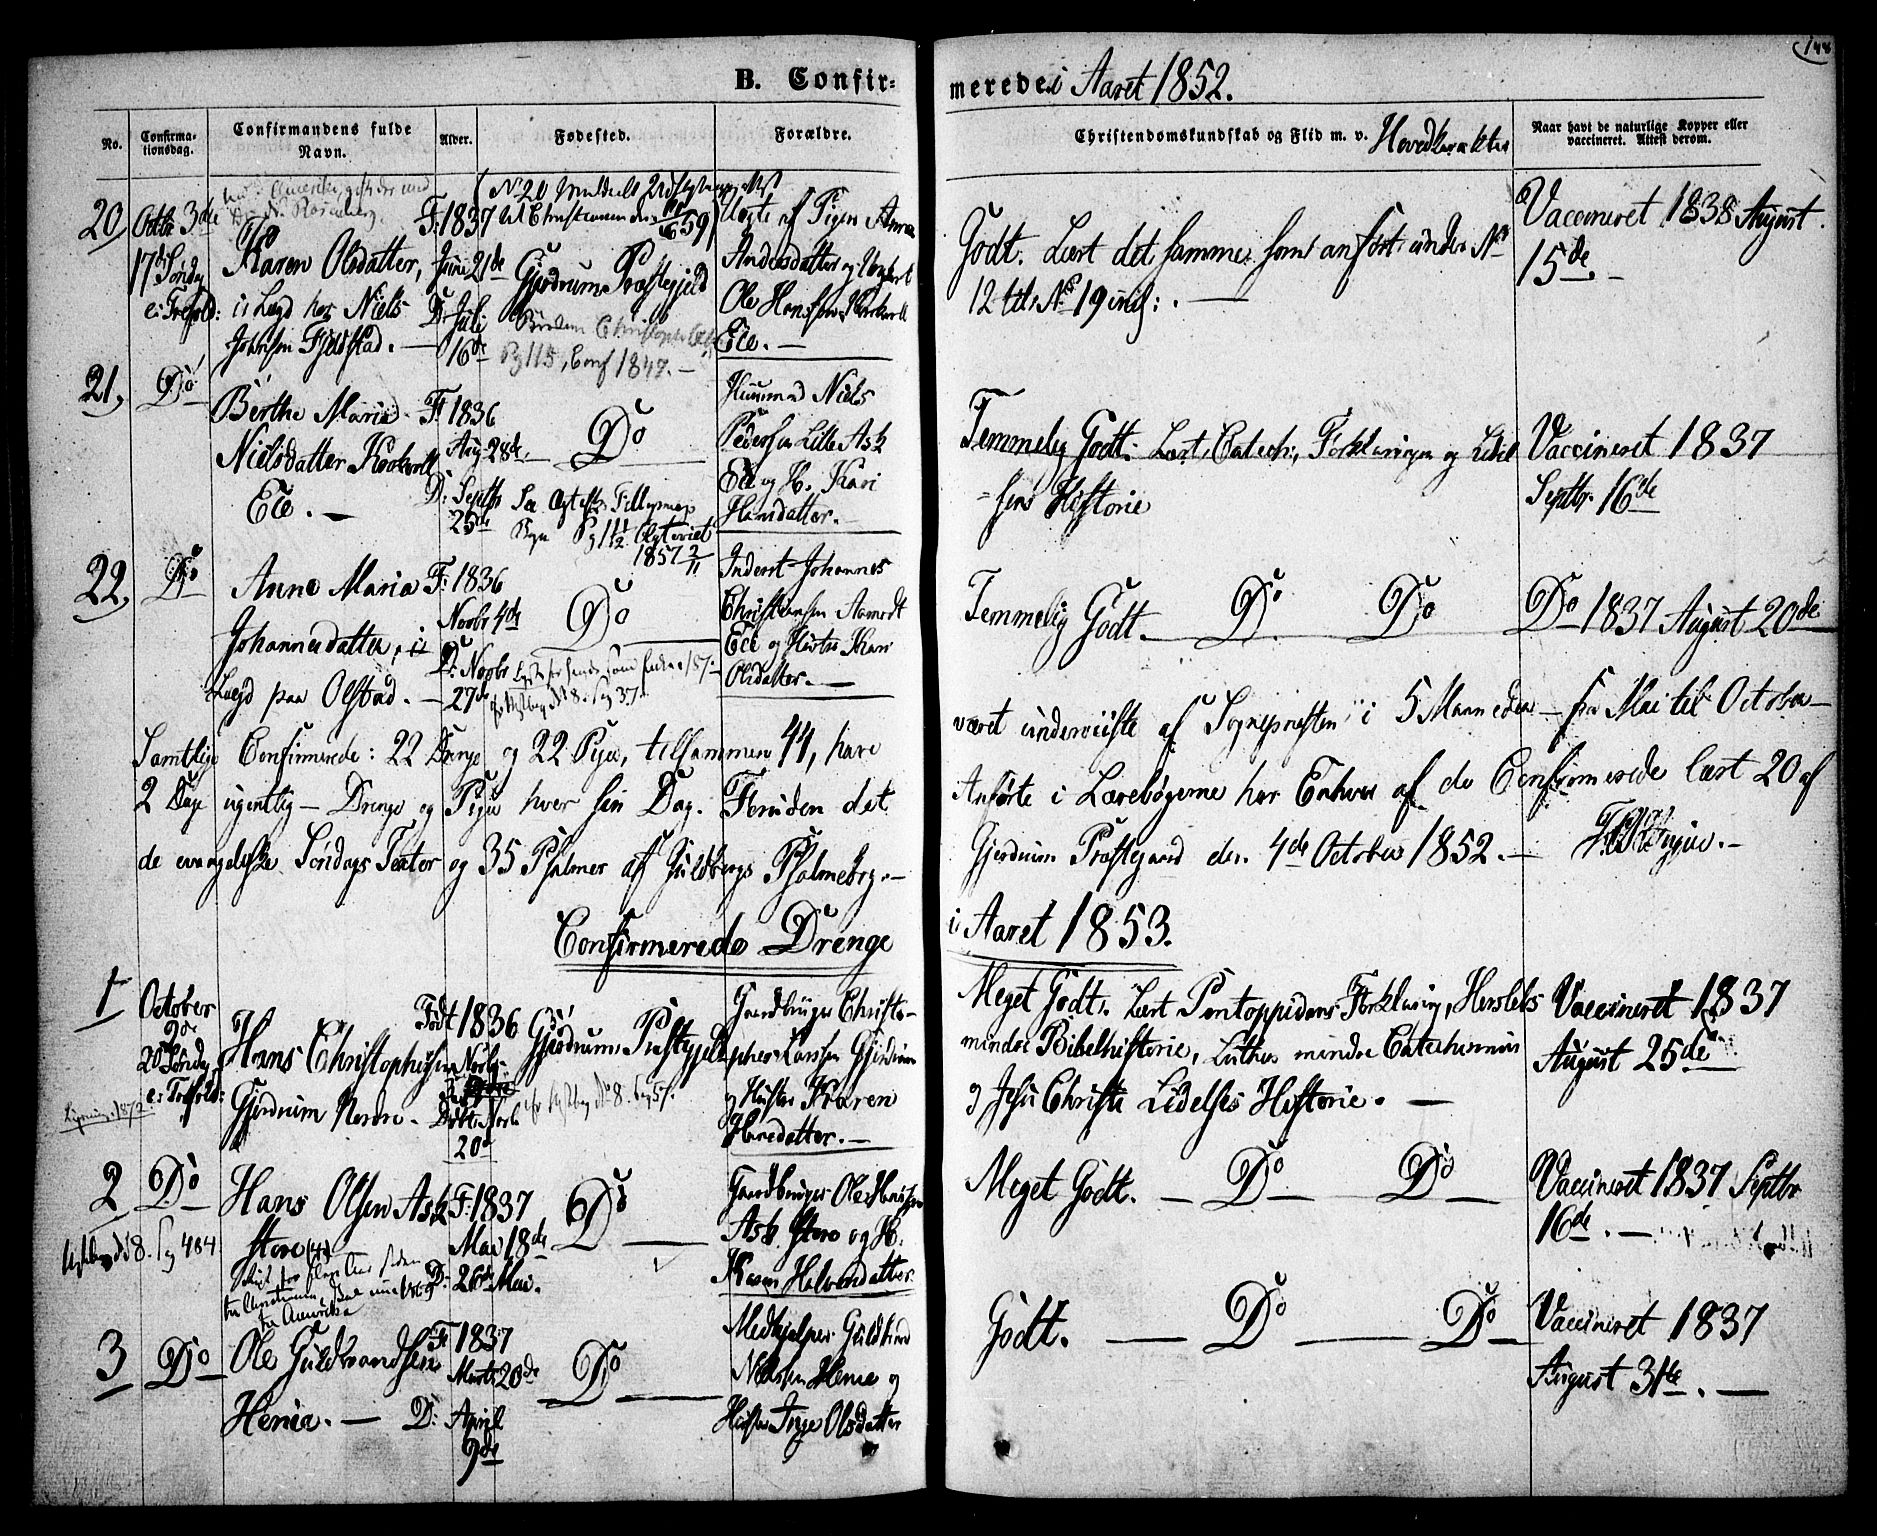 B. Confir-
meredei Aaret 1852.
144
No.
Confirma-
tionsdag.
Confirmandens fulde
Navn.
Alder.
Fødested.
Forældre.
Christendomskundskab og Flid m. v. Hovedkarakter
Naar havt de naturlige Kopper eller
vaccineret. Attest derom.
20, Octbr 3die
17de Søndag
e: Trefold:
Karen Olsdatter,
i Lægd hos Niels
Johnsen Fjeldstad. —
F: 1837
Juni 21de
D: Juli
16de
(No 20 meddeelt
til Christiania den 59)
Gjerdrums Præstegjeld
Pg 115, Conf 1847. —
Uægte af Pigen Anne
Andersdatter og Ungkarl
Ole Hansen Kokvoll
Eie. —
Godt. Læst det samme som anført under No
12 til No 19 incl: . —
Vaccineret 1838 August
15de. —
21, Do
Berthe Maria
Nielsdatter Kokvoll
Eie. —
F: 1836
Aug. 28de
D: Septbr
25de
Do
1857
Huusmand Niels
Pedersen Lille Ask
Eie og H. Kari
Hansdatter. —
Temmelig Godt. Læst Catech:, Forklaringen og Lidel
-sens Historie
Vaccineret 1837
Septbr. 16de
22, Do
Anne Maria
Johannesdatter, i
Lægd paa Olstad. —
F: 1836
Novbr 4de
D: Novbr
27de
Do
Inderst Johannes
Christiansen
Eie og Hustru Kari
Olsdatter. —
Temmelig Godt. — Do — Do
Do 1837 August 20de
Samtlige Confirmerede: 22 Drenge og 22 Piger, tilsammen 44, have
været underviiste af Sognepresten i 5 Maaneder — fra Mai til October —
2 Dage ugentlig — Drenge og Piger hver sin Dag. Foruden det
Anførte i Lærebøgerne har Enhver af de Confirmerede læst 20 af
de evangeliske Søndags Texter og 35 Psalmer af Guldbergs Psalmebog. —
Gjerdrum Præstegaard den 4de October 1852. —
Confirmerede Drenge
i Aaret 1853.
1 October
9de
20 Søndag
e: Trefold:
Hans Christophersen
Gjerdrum Nordre. —
Født 1836
Novbr
Døbt Novbr
20de
Gjerdrums Præstegjeld
Gaardbruger Christo-
pher Larsen Gjerdrum
og Hustru Karen
Hansdatter. —
Meget Godt. Læst Pontoppidans Forklaring, Herslebs
mindre Bibelhistorie, Luthers mindre Catechismus
og Jesu Christi Lidelses Historie. —
Vaccineret 1837
August 25de
2 Do
Hans Olsen Ask
store
F: 1837
Mai 18de
D: 26de Mai.
Do —
Gaardbruger Ole Hansen
Ask store og H.
Karen Halvorsdatter
Meget Godt. — Do — Do —
Vaccineret 1837 Septbr
16de. —
484
fra Amerika
3 Do
Ole Guldbrandsen
Henia. —
F: 1837
Marts 20de
D: April
9de
Do —
Medhjelper Guldbrand
Nielsen Henie og
Hustru Inge Olsdatter
Godt. — Do — Do —
Vaccineret 1837
August 31te. —